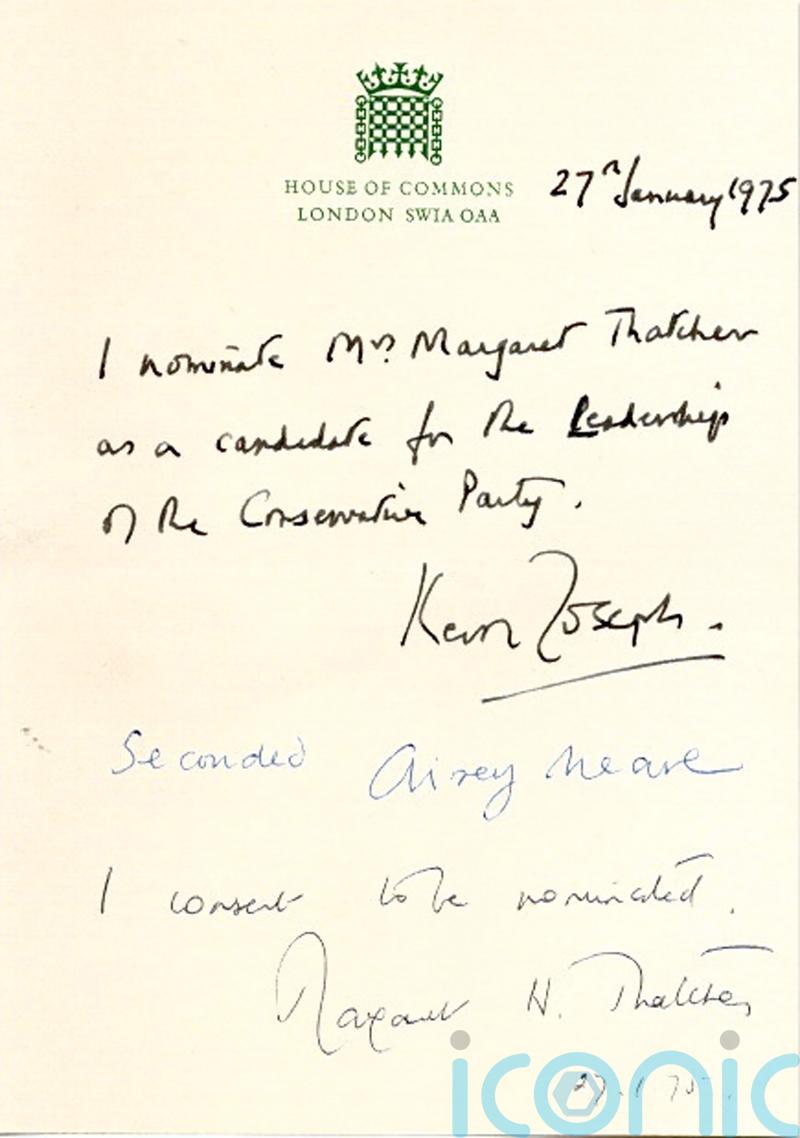 HOUSE OF COMMONS
LONDON SW1A 0AA
27th January 1975
I nominate Mrs. Margaret Thatcher
as a candidate for the Leadership
of the Conservative Party.
Keith Joseph.
Seconded Airey Neave
I consent to be nominated.
Margaret H. Thatcher
27.1.75.
iconic